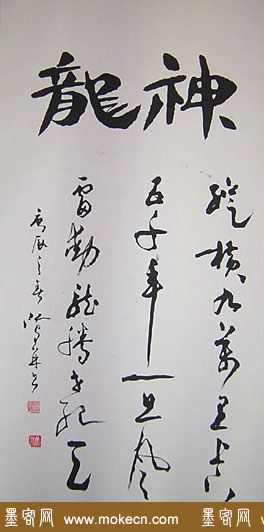 神龍
縱橫九萬里上下
五千年一旦風
雷動龍騰世紀天
庚辰之春
墨客网 www.mokecn.com 墨客网